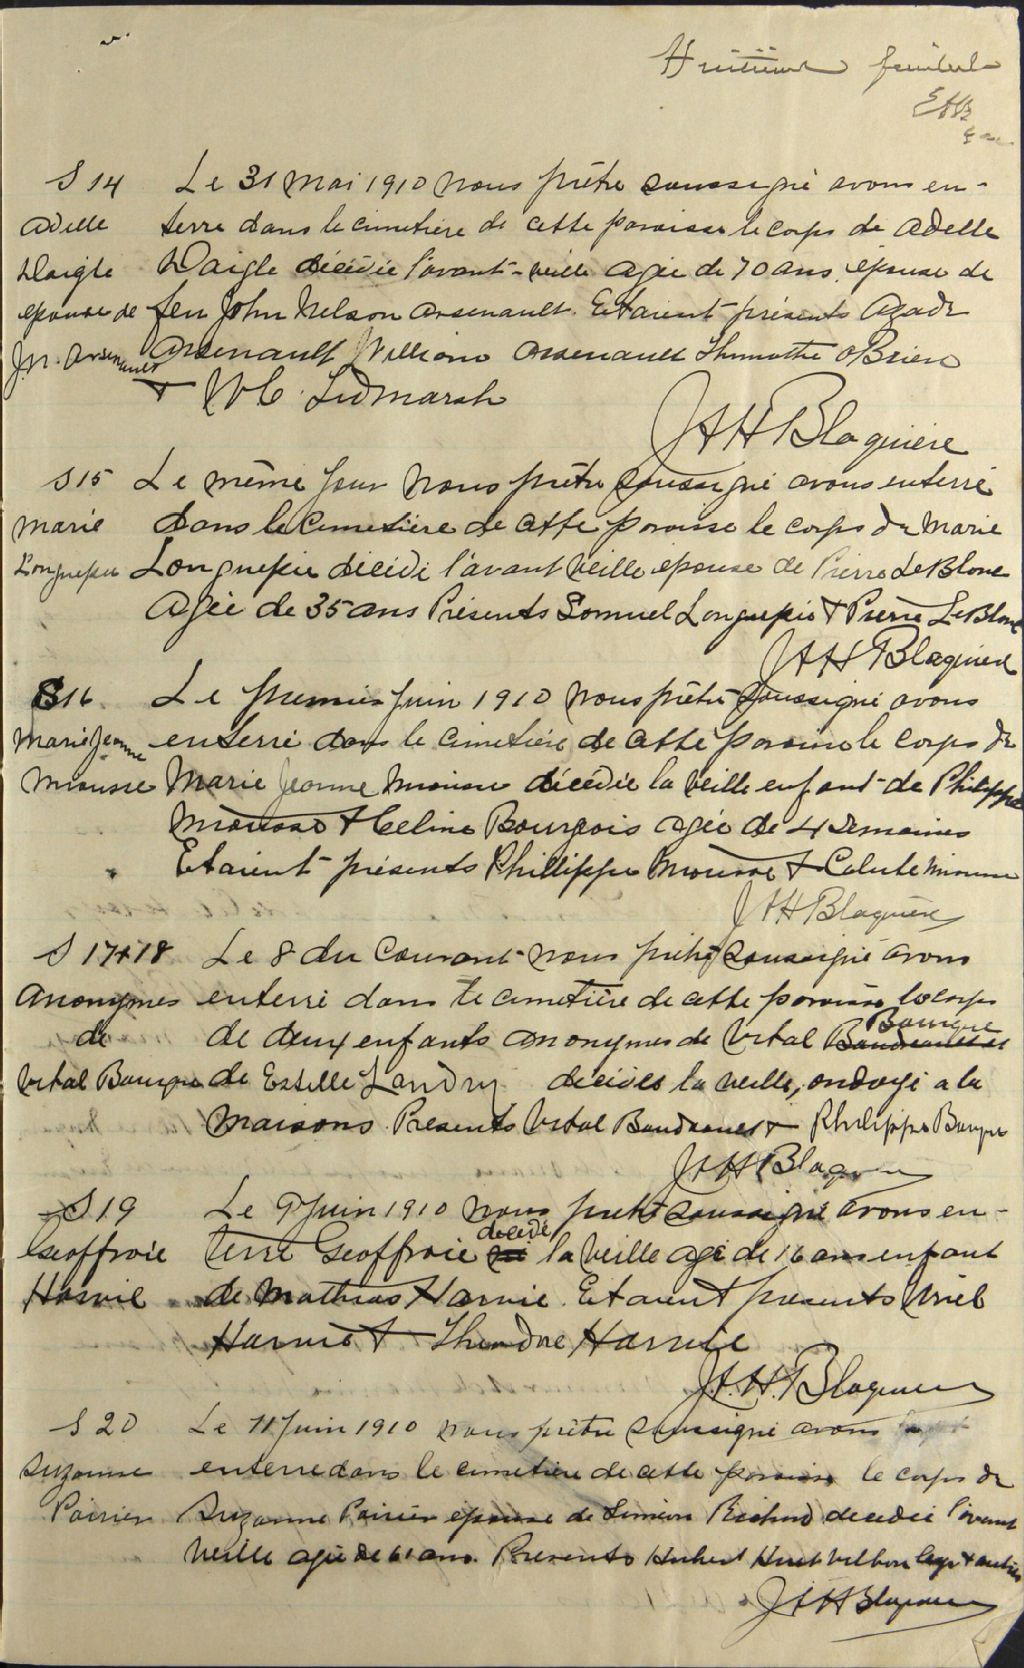 Huitième feuillet
S 14 Le 31 Mai 1910 nous prêtre soussigné avons en-
Adelle terré dans le cimetière de cette paroisse le corps de Adelle
Daigle Daigle décédée l'avant-veille agée de 70 ans, épouse de
epouse de feu John Nelson Arsenault. Etaient présents Azade
J.N. Arsenault Arsenault William Arsenault Thimothe OBrien
+ W C Tidmarsh
J A H Blaquière
S 15 Le même jour nous prêtre soussigné avons enterré
Marie dans le cimetière de cette paroisse le corps de Marie
Longuepée Longuepée décédé l'avant veille epouse de Pierre LeBlanc
Agée de 35 ans Présents Samuel Longuepée + Pierre LeBlanc
J A H Blaquière
S 16 Le premier Juin 1910 nous prêtre soussigné avons
Marie Jeanne enterré dans le cimetière de cette paroisse le corps de
Miousse Marie Jeanne Miousse décédée la veille enfant de Philippe
Miousse + Celine Bourgeois agée de 4 semaines
Etaient présents Phillippe Miousse + Miousse
J A H Blaquière
S 17+18 Le 8 du Courant nous prêtre soussigné avons
Anonymes enterré dans le cimetière de cette paroisse le corps
de de deux enfants anonymes de Vital Boudreault Bourque
Vital Bourque de Estelle Landry décédés la veille, ondoyé a la
maisons. Présents Vital Boudreault + Philippe Bourque
J A H Blaquière
S 19 Le 9 Juin 1910 nous prêtre soussigné avons en-
Geoffroie terré Geoffroie décédé la veille agé de 16 ans enfant
Harvie de Mathias Harvie. Etaient présents Uriel
Harvie + Theodore Harvie
J. A. H. Blaquière
S 20 Le 11 Juin 1910 nous prêtre soussigné avons
Suzanne enterré dans le cimetière de cette paroisse le corps de
Poirier Suzanne Poirier epouse de Siméon Richard decedée l'avant
Veille agée de 61 ans. Presents Hubert + autres
J A H Blaquière